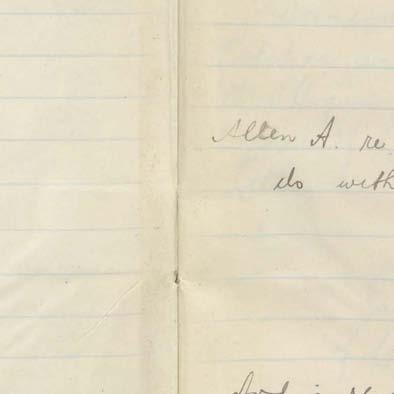 Allen A. re
do with